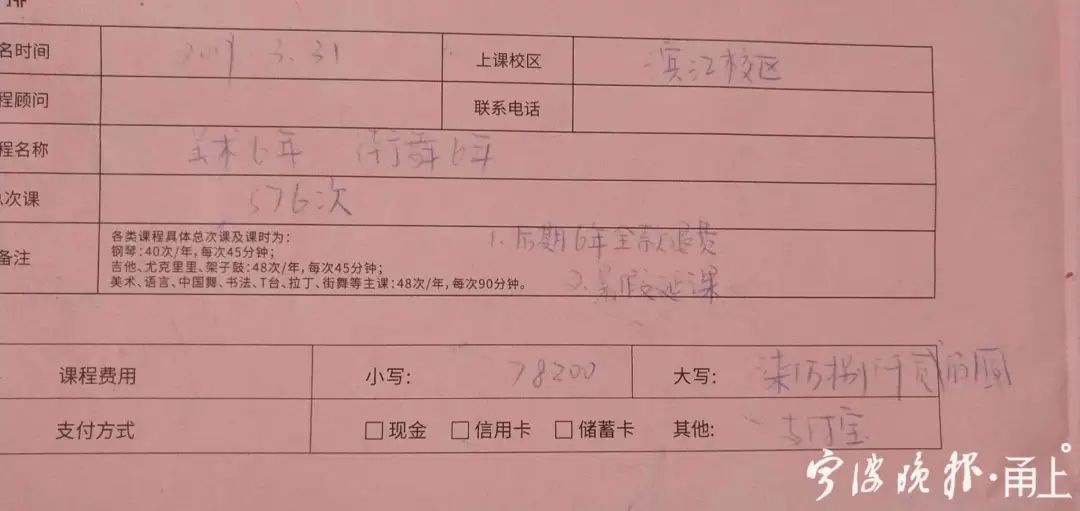 名时间 3.31 上课校区 滨江校区
程顾问 联系电话
程名称 美术6年 街舞6年
总次课 576次
备注 各类课程具体总次课及课时为:
钢琴:40次/年,每次45分钟;
吉他、尤克里里、架子鼓:48次/年,每次45分钟;
美术、语言、中国舞、书法、T台、拉丁、街舞等主课:48次/年,每次90分钟。
1.后期6年全款退费
2.暑假延课
课程费用 小写: 78200 大写: 柒万捌仟贰佰圆
支付方式 □现金 □信用卡 □储蓄卡 其他: 支付宝
宁波晚报·甬上